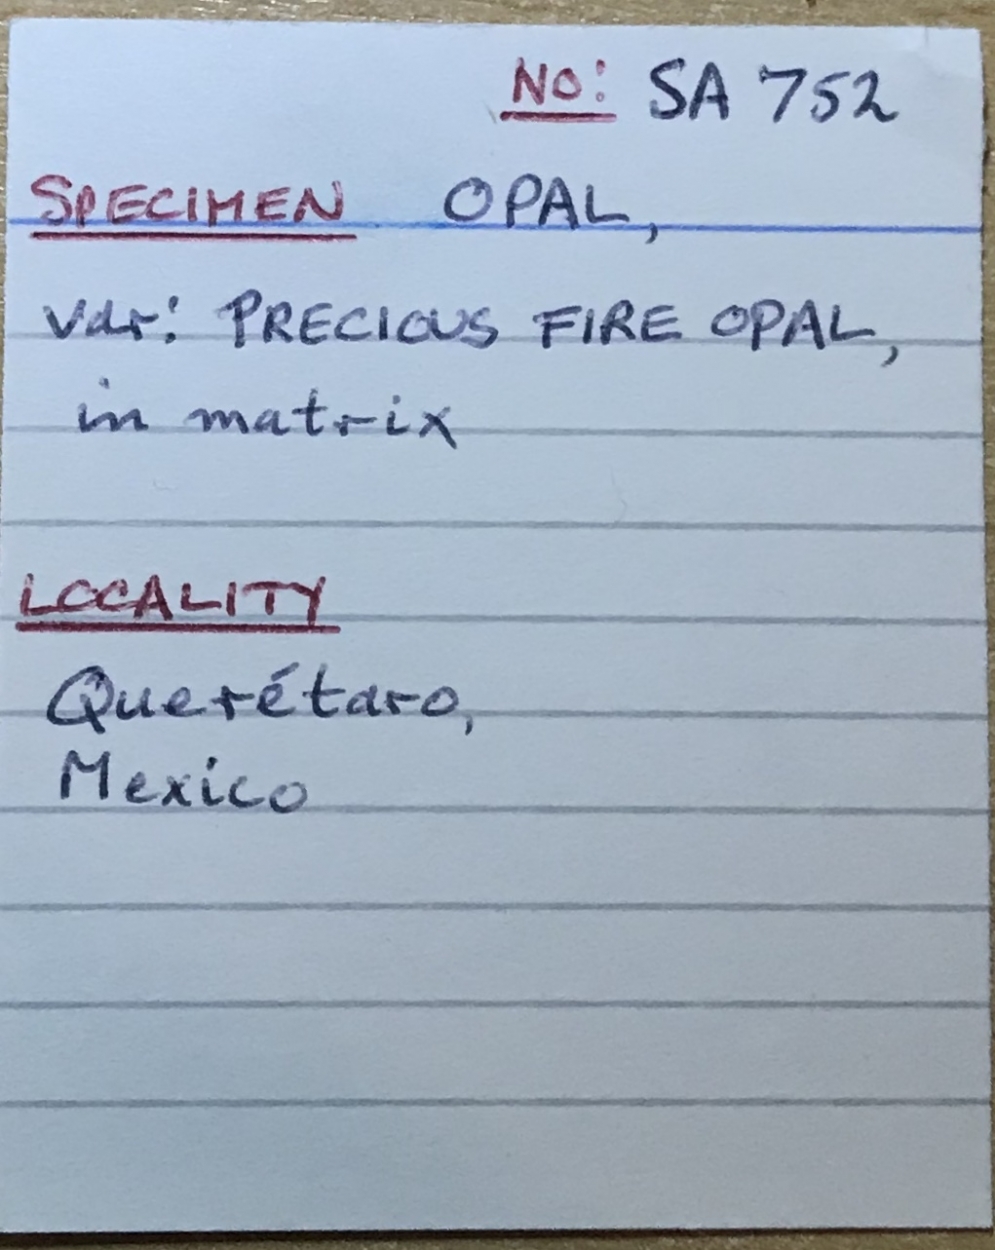 No: SA 752
SPECIMEN OPAL,
var: PRECIOUS FIRE OPAL,
in matrix
LOCALITY
Querétaro,
Mexico